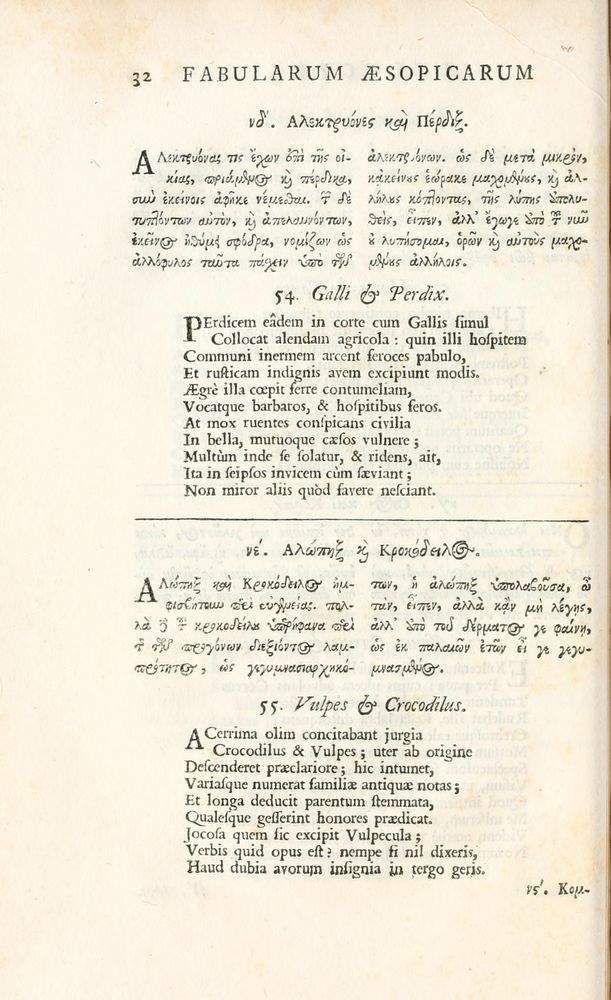 32 FABULARUM ÆSOPICARUM
νδ'. Ἀλεκτρυόνες καὶ Πέρδιξ.
ΑΛεκτρυόνας τις ἔχων ἐπὶ τῆς οἰ-
κίας, πριάμενος καὶ πέρδικα,
σὺν ἐκείνοις ἀφῆκε νέμεσθαι. τῶν δὲ
τυπτόντων αὐτὸν, καὶ ἀπελαυνόντων,
ἐκεῖνος ἠθύμει σφόδρα, νομίζων ὡς
ἀλλόφυλος ταῦτα πάσχειν ὑπὸ τῶν
ἀλεκτρυόνων. ὡς δὲ μετὰ μικρὸν,
κἀκείνους ἑώρακε μαχομένους, καὶ ἀλ-
λήλους κόπτοντας, τῆς λύπης ἀπολυ-
θεὶς, εἶπεν, ἀλλ' ἔγωγε ἀπὸ τοῦ νῦν
οὐ λυπήσομαι, ὁρῶν καὶ αὐτοὺς μαχο-
μένους ἀλλήλοις.
54. Galli & Perdix.
PErdicem eâdem in corte cum Gallis ſimul
Collocat alendam agricola: quin illi hoſpitem
Communi inermem arcent feroces pabulo,
Et ruſticam indignis avem excipiunt modis.
Ægrè illa cœpit ferre contumeliam,
Vocatque barbaros, & hoſpitibus feros.
At mox ruentes conſpicans civilia
In bella, mutuoque cæſos vulnere;
Multùm inde ſe ſolatur, & ridens, ait,
Ita in ſeipſos invicem cùm ſæviant;
Non miror aliis quòd favere neſciant.
νε'. Ἀλώπηξ καὶ Κροκόδειλος.
ΑΛώπηξ καὶ Κροκόδειλος ἠμ-
φισβήτουν περὶ εὐγενείας. πολ-
λὰ δὲ τοῦ κροκοδείλου ὑπερήφανα περὶ
τῆς τῶν προγόνων διεξιόντος λαμ-
πρότητος, ὡς γεγυμνασιαρχηκό-
των, ἡ ἀλώπηξ ὑπολαβοῦσα, ὦ
τὰν, εἶπεν, ἀλλὰ κἂν μὴ λέγῃς,
ἀλλ' ἀπὸ τοῦ δέρματος γε φαίνῃ,
ὡς ἐκ παλαιῶν ἐτῶν εἶ γε γεγυ-
μνασμένος.
55. Vulpes & Crocodilus.
ACerrima olim concitabant jurgia
Crocodilus & Vulpes; uter ab origine
Deſcenderet præclariore; hic intumet,
Variaſque numerat familiæ antiquæ notas;
Et longa deducit parentum ſtemmata,
Qualeſque geſſerint honores prædicat.
Jocoſa quem ſic excipit Vulpecula;
Verbis quid opus eſt? nempe ſi nil dixeris,
Haud dubia avorum inſignia in tergo geris.
νς'. Κομ-